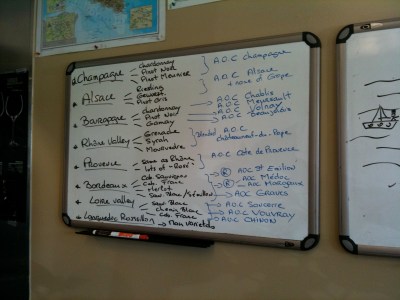 Champagne Chardonnay Pinot Noir Pinot Meunier A.O.C Champagne
Alsace Riesling Gewurzt Pinot Gris A.O.C Alsace + name of Grape
Bourgogne chardonnay Pinot Noir Gamay A.O.C Chablis A.O.C Meursault A.O.C Volnay A.O.C Beaujolais
Rhône Valley Grenache Syrah Mourvedre Blended A.O.C Châteauneuf-du-Pape
Provence Same as Rhône lots of Rosé A.O.C Côte de Provence
Bordeaux Cab. Sauvignon Cab. Franc Merlot Sauv. Blanc/Sémillon AOC St Emilion AOC Médoc AOC Margaux AOC Graves
Loire Valley Sauv. Blanc Chenin Blanc Cab. Franc A.O.C Sancerre A.O.C Vouvray A.O.C CHINON
Languedoc Roussillon Many varietals